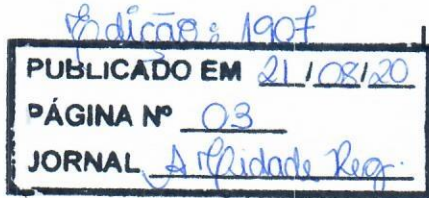 Edição: 1907
PUBLICADO EM 21/08/20
PÁGINA Nº 03
JORNAL A Cidade Reg.